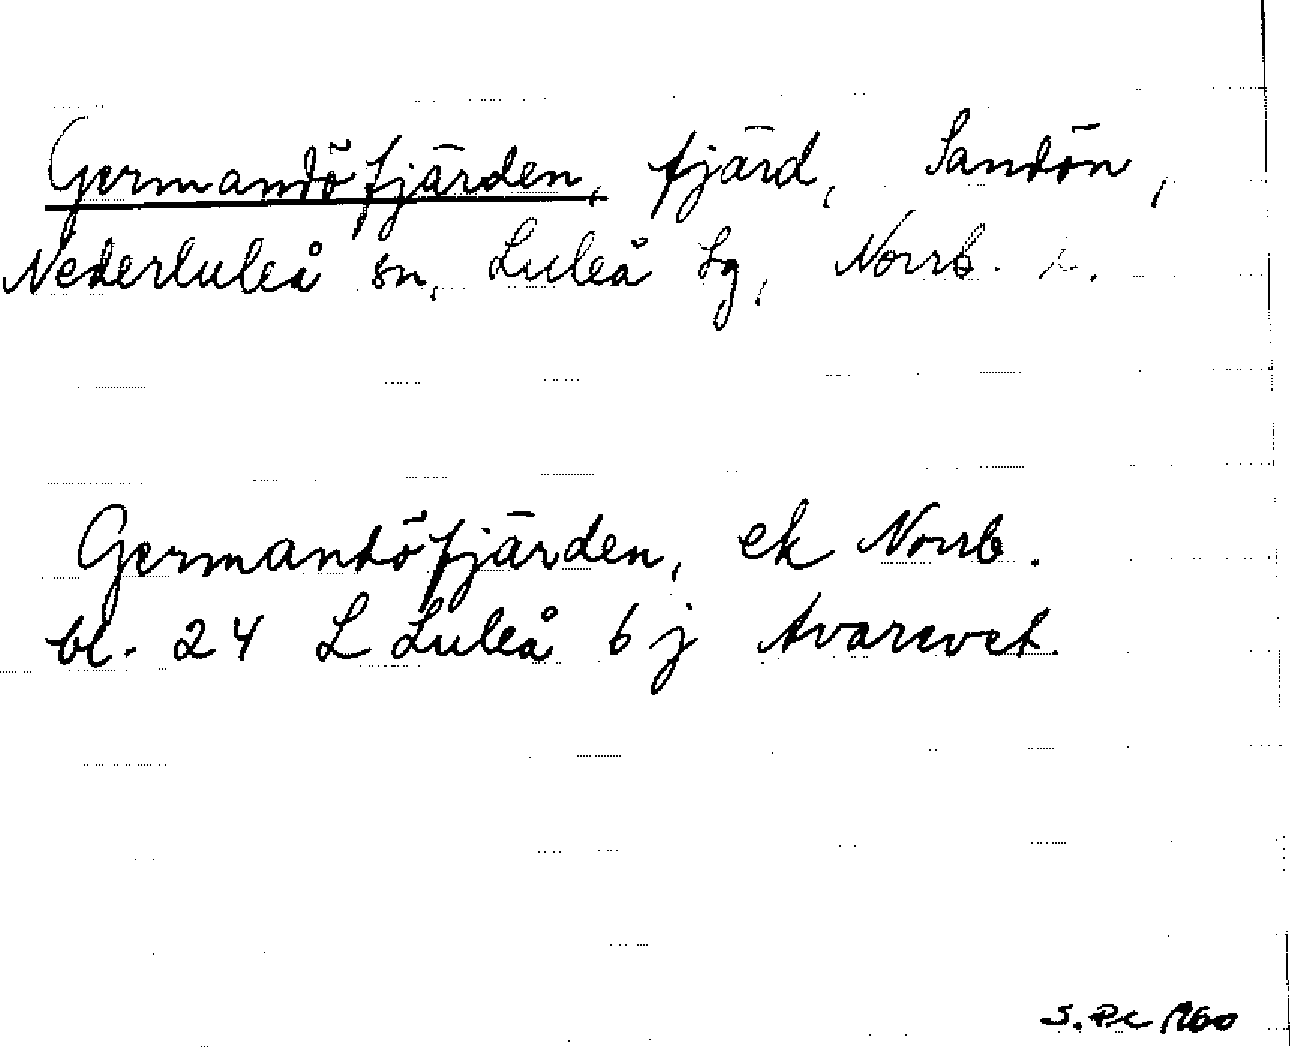 Germandöfjärden, fjärd, Sandön,
Nederluleå sn, Luleå tg, Norrb. l.
Germandöfjärden, ek Norrb.
bl. 24 L Luleå 6 j Avarevet.